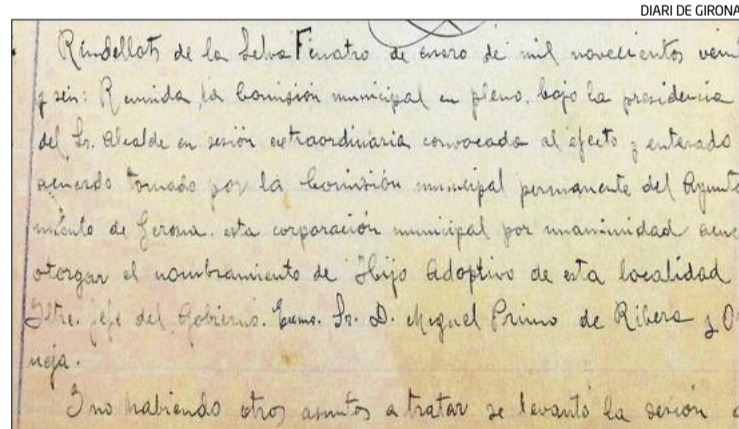 DIARI DE GIRONA
Riudellots de la Selva cuatro de enero de mil novecientos vein
y seis: Reunida la Comisión municipal en pleno, bajo la presidencia
del Sr. Alcalde en sesión extraordinaria convocada al efecto y enterado
acuerdo tomado por la Comisión municipal permanente del Ayunta
miento de Gerona, esta corporación municipal por unanimidad acue
otorgar el nombramiento de Hijo Adoptivo de esta localidad
Iltre. Jefe del Gobierno. Excmo. Sr. D. Miguel Primo de Ribera y O
neja.
I no habiendo otros asuntos a tratar se levantó la sesión